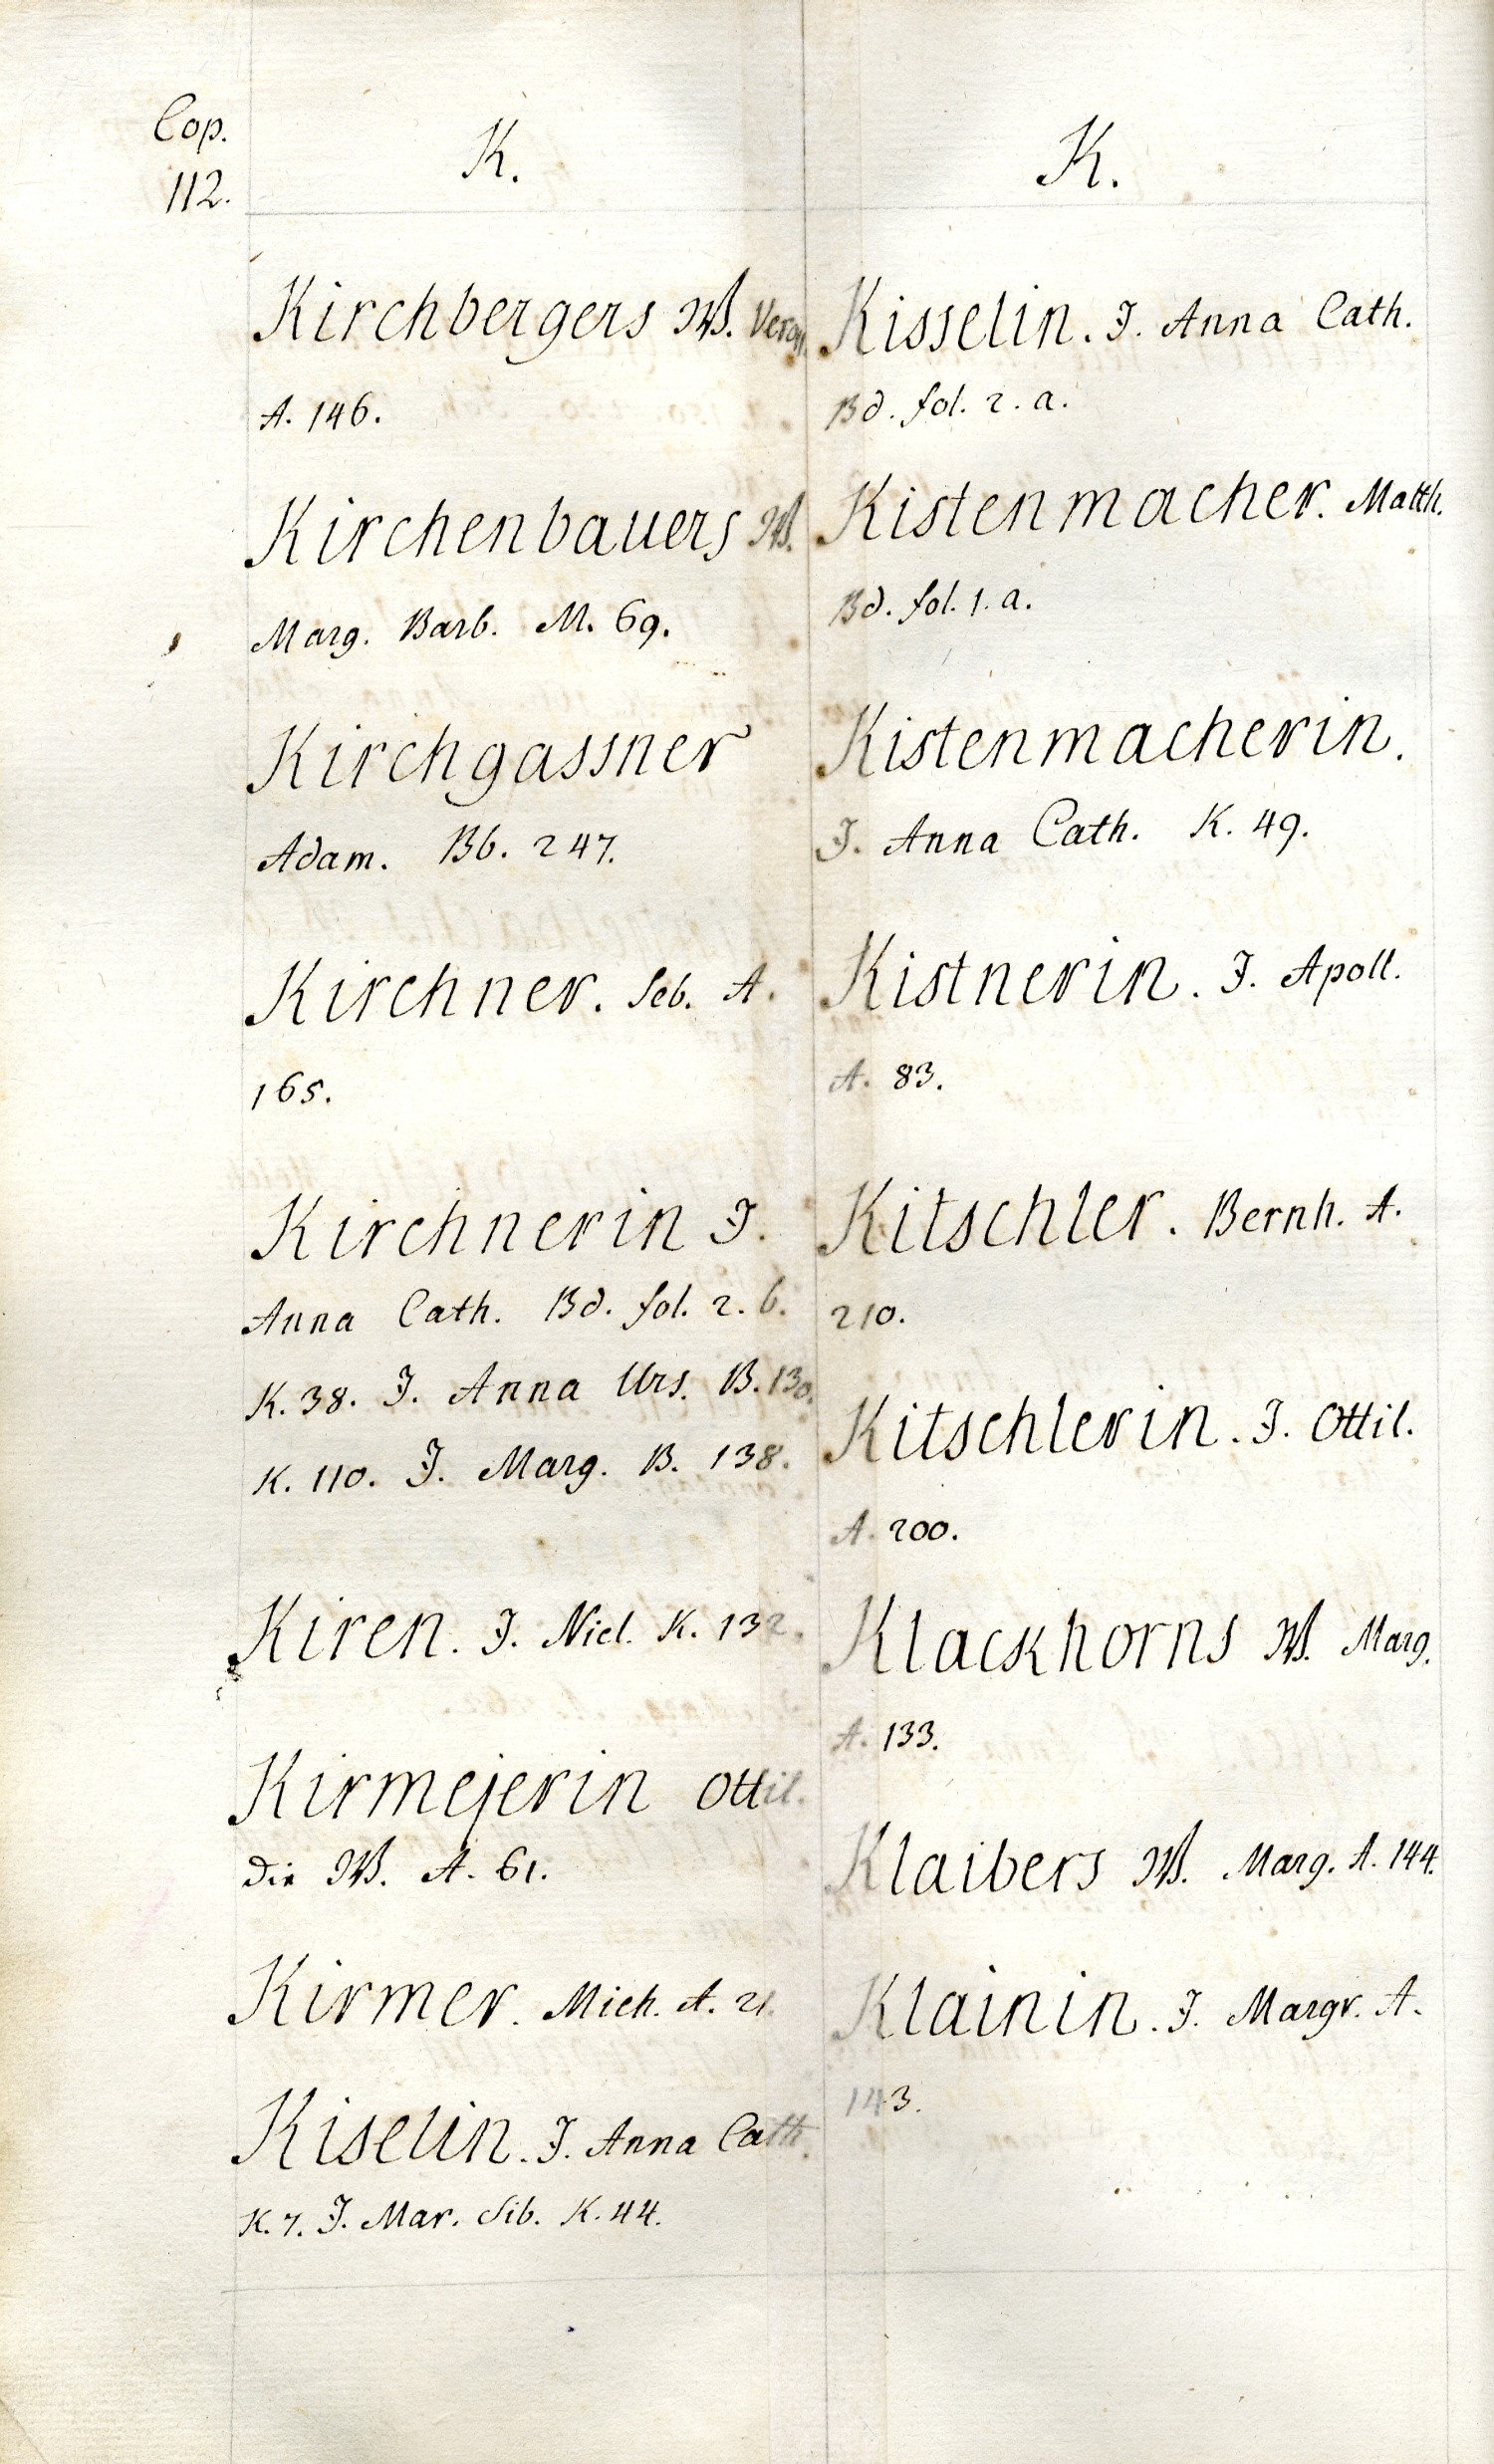 Cop.
112.
K.
Kirchbergers W. Veron.
A. 146.
Kirchenbauers W.
Marg. Barb. M. 69.
Kirchgassner
Adam. Bb. 247.
Kirchner. Seb. A.
165.
Kirchnerin J.
Anna Cath. Bd. fol. 2. b.
K. 38. J. Anna Urs. B. 130.
K. 110. J. Marg. B. 138.
Kiren. J. Nicl. K. 132.
Kirmejerin Ottil.
die W. A. 61.
Kirmer. Mich. A. 21.
Kiselin. J. Anna Cath.
K. 7. J. Mar. Sib. K. 44.
K.
Kisselin. J. Anna Cath.
Bd. fol. 2. a.
Kistenmacher. Matth.
Bd. fol. 1. a.
Kistenmacherin.
J. Anna Cath. K. 49.
Kistnerin. J. Apoll.
A. 83.
Kitschler. Bernh. A.
210.
Kitschlerin. J. Ottil.
A. 200.
Klackhorns W. Marg.
A. 133.
Klaibers W. Marg. A. 144.
Klainin. J. Margr. A.
143.